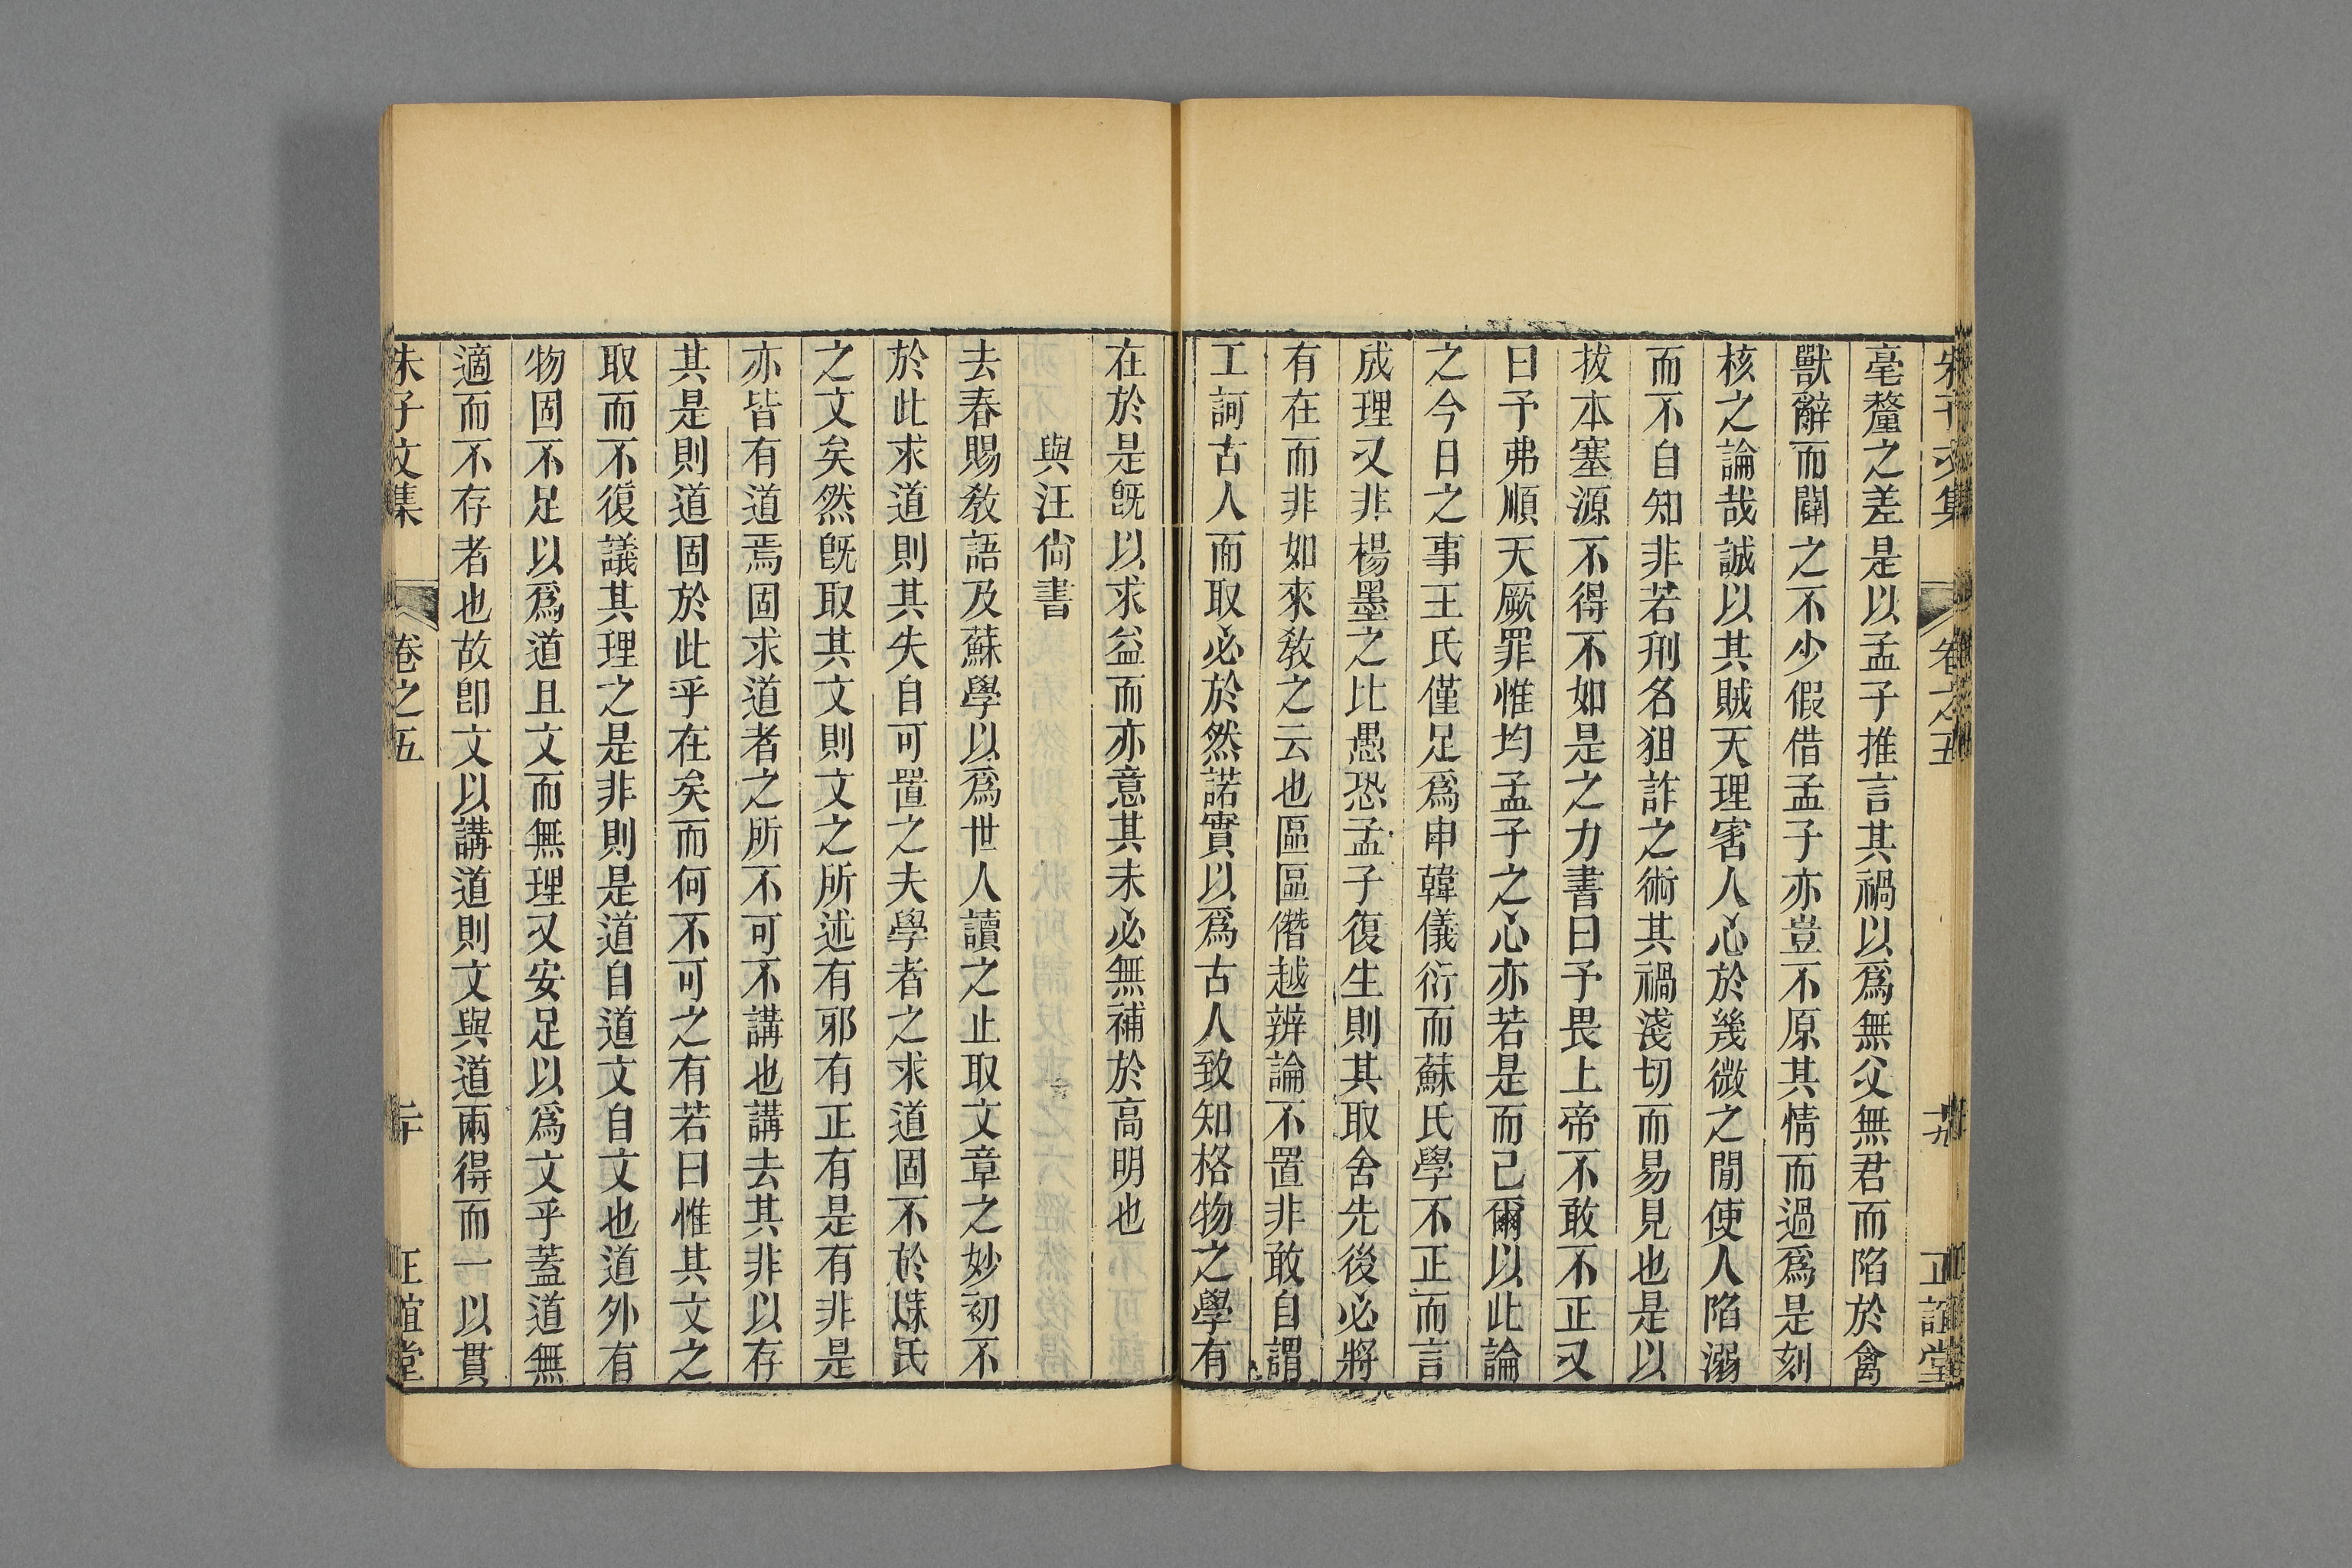 朱子文集 卷之五 十九 正誼堂
毫釐之差是以孟子推言其禍以爲無父無君而陷於禽
獸辭而闢之不少假借孟子亦豈不原其情而過爲是刻
核之論哉誠以其賊天理害人心於幾微之閒使人陷溺
而不自知非若刑名狙詐之術其禍淺切而易見也是以
拔本塞源不得不如是之力書曰予畏上帝不敢不正又
曰予弗順天厥罪惟均孟子之心亦若是而已爾以此論
之今日之事王氏僅足爲申韓儀衍而蘇氏學不正而言
成理又非楊墨之比愚恐孟子復生則其取舍先後必將
有在而非如來敎之云也區區僭越辨論不置非敢自謂
工訶古人而取必於然諾實以爲古人致知格物之學有
在於是旣以求益而亦意其未必無補於高明也
與汪尙書
去春賜敎語及蘇學以爲世人讀之止取文章之妙初不
於此求道則其失自可置之夫學者之求道固不於蘇氏
之文矣然旣取其文則文之所述有邪有正有是有非是
亦皆有道焉固求道者之所不可不講也講去其非以存
其是則道固於此乎在矣而何不可之有若曰惟其文之
取而不復議其理之是非則是道自道文自文也道外有
物固不足以爲道且文而無理又安足以爲文乎蓋道無
適而不存者也故卽文以講道則文與道兩得而一以貫
朱子文集 卷之五 二十 正誼堂